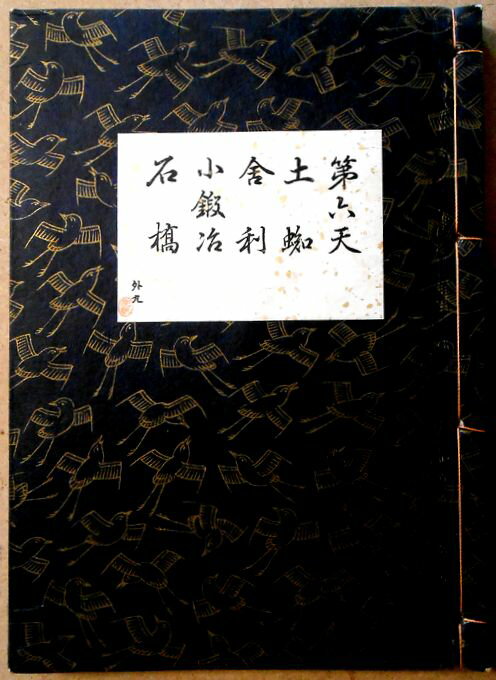 第六天
土蜘
舎利
小鍛冶
石橋
外九